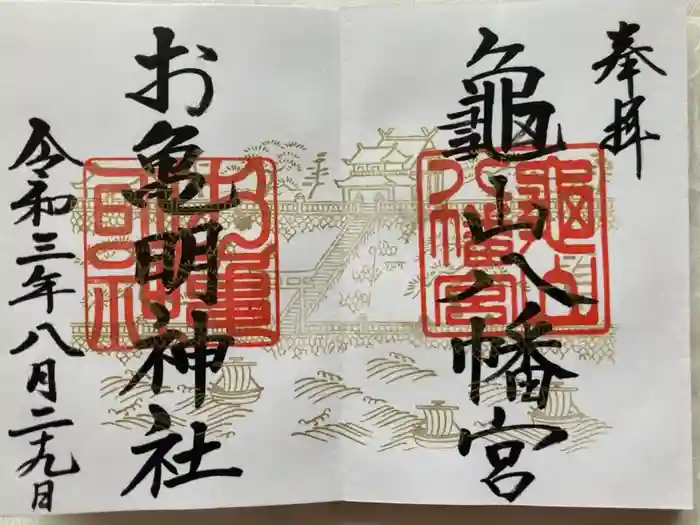 奉拝
龜山八幡宮
龜山
八幡宮
お亀明神社
お亀
令和三年八月二九日